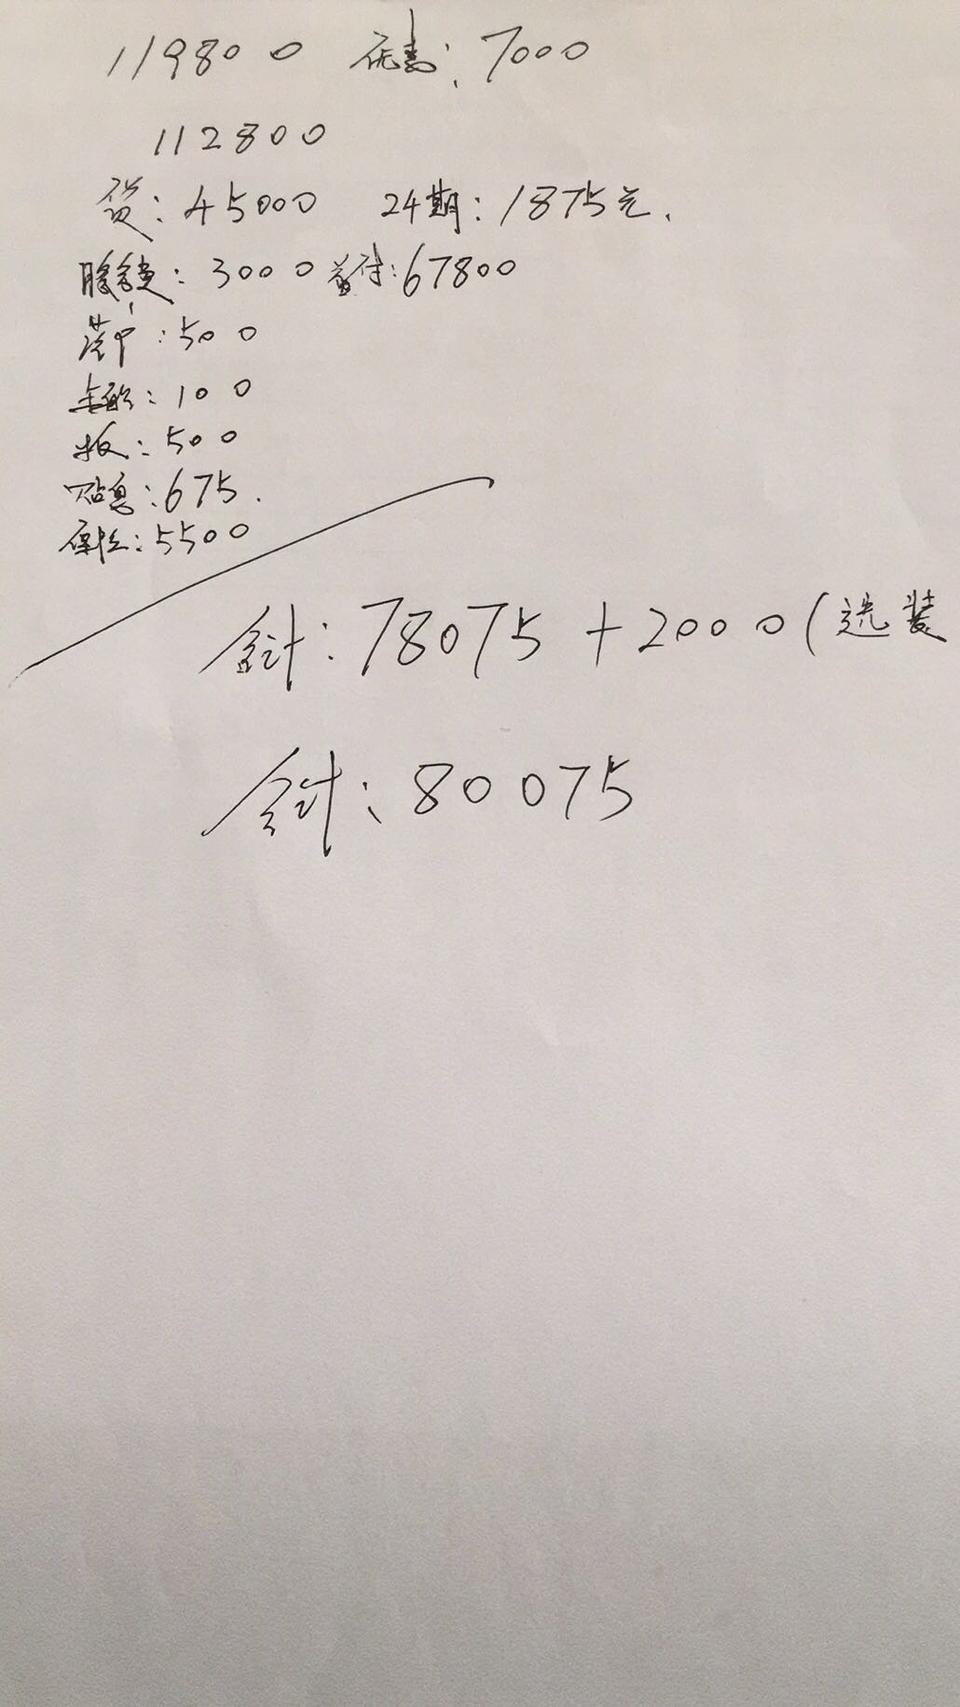 119800 优惠: 7000
112800
贷: 45000 24期: 1875元.
服务费: 3000 首付: 67800
: 500
上牌: 100
板: 500
贴息: 675.
保险: 5500
合计: 78075 + 2000 (选装
合计: 80075